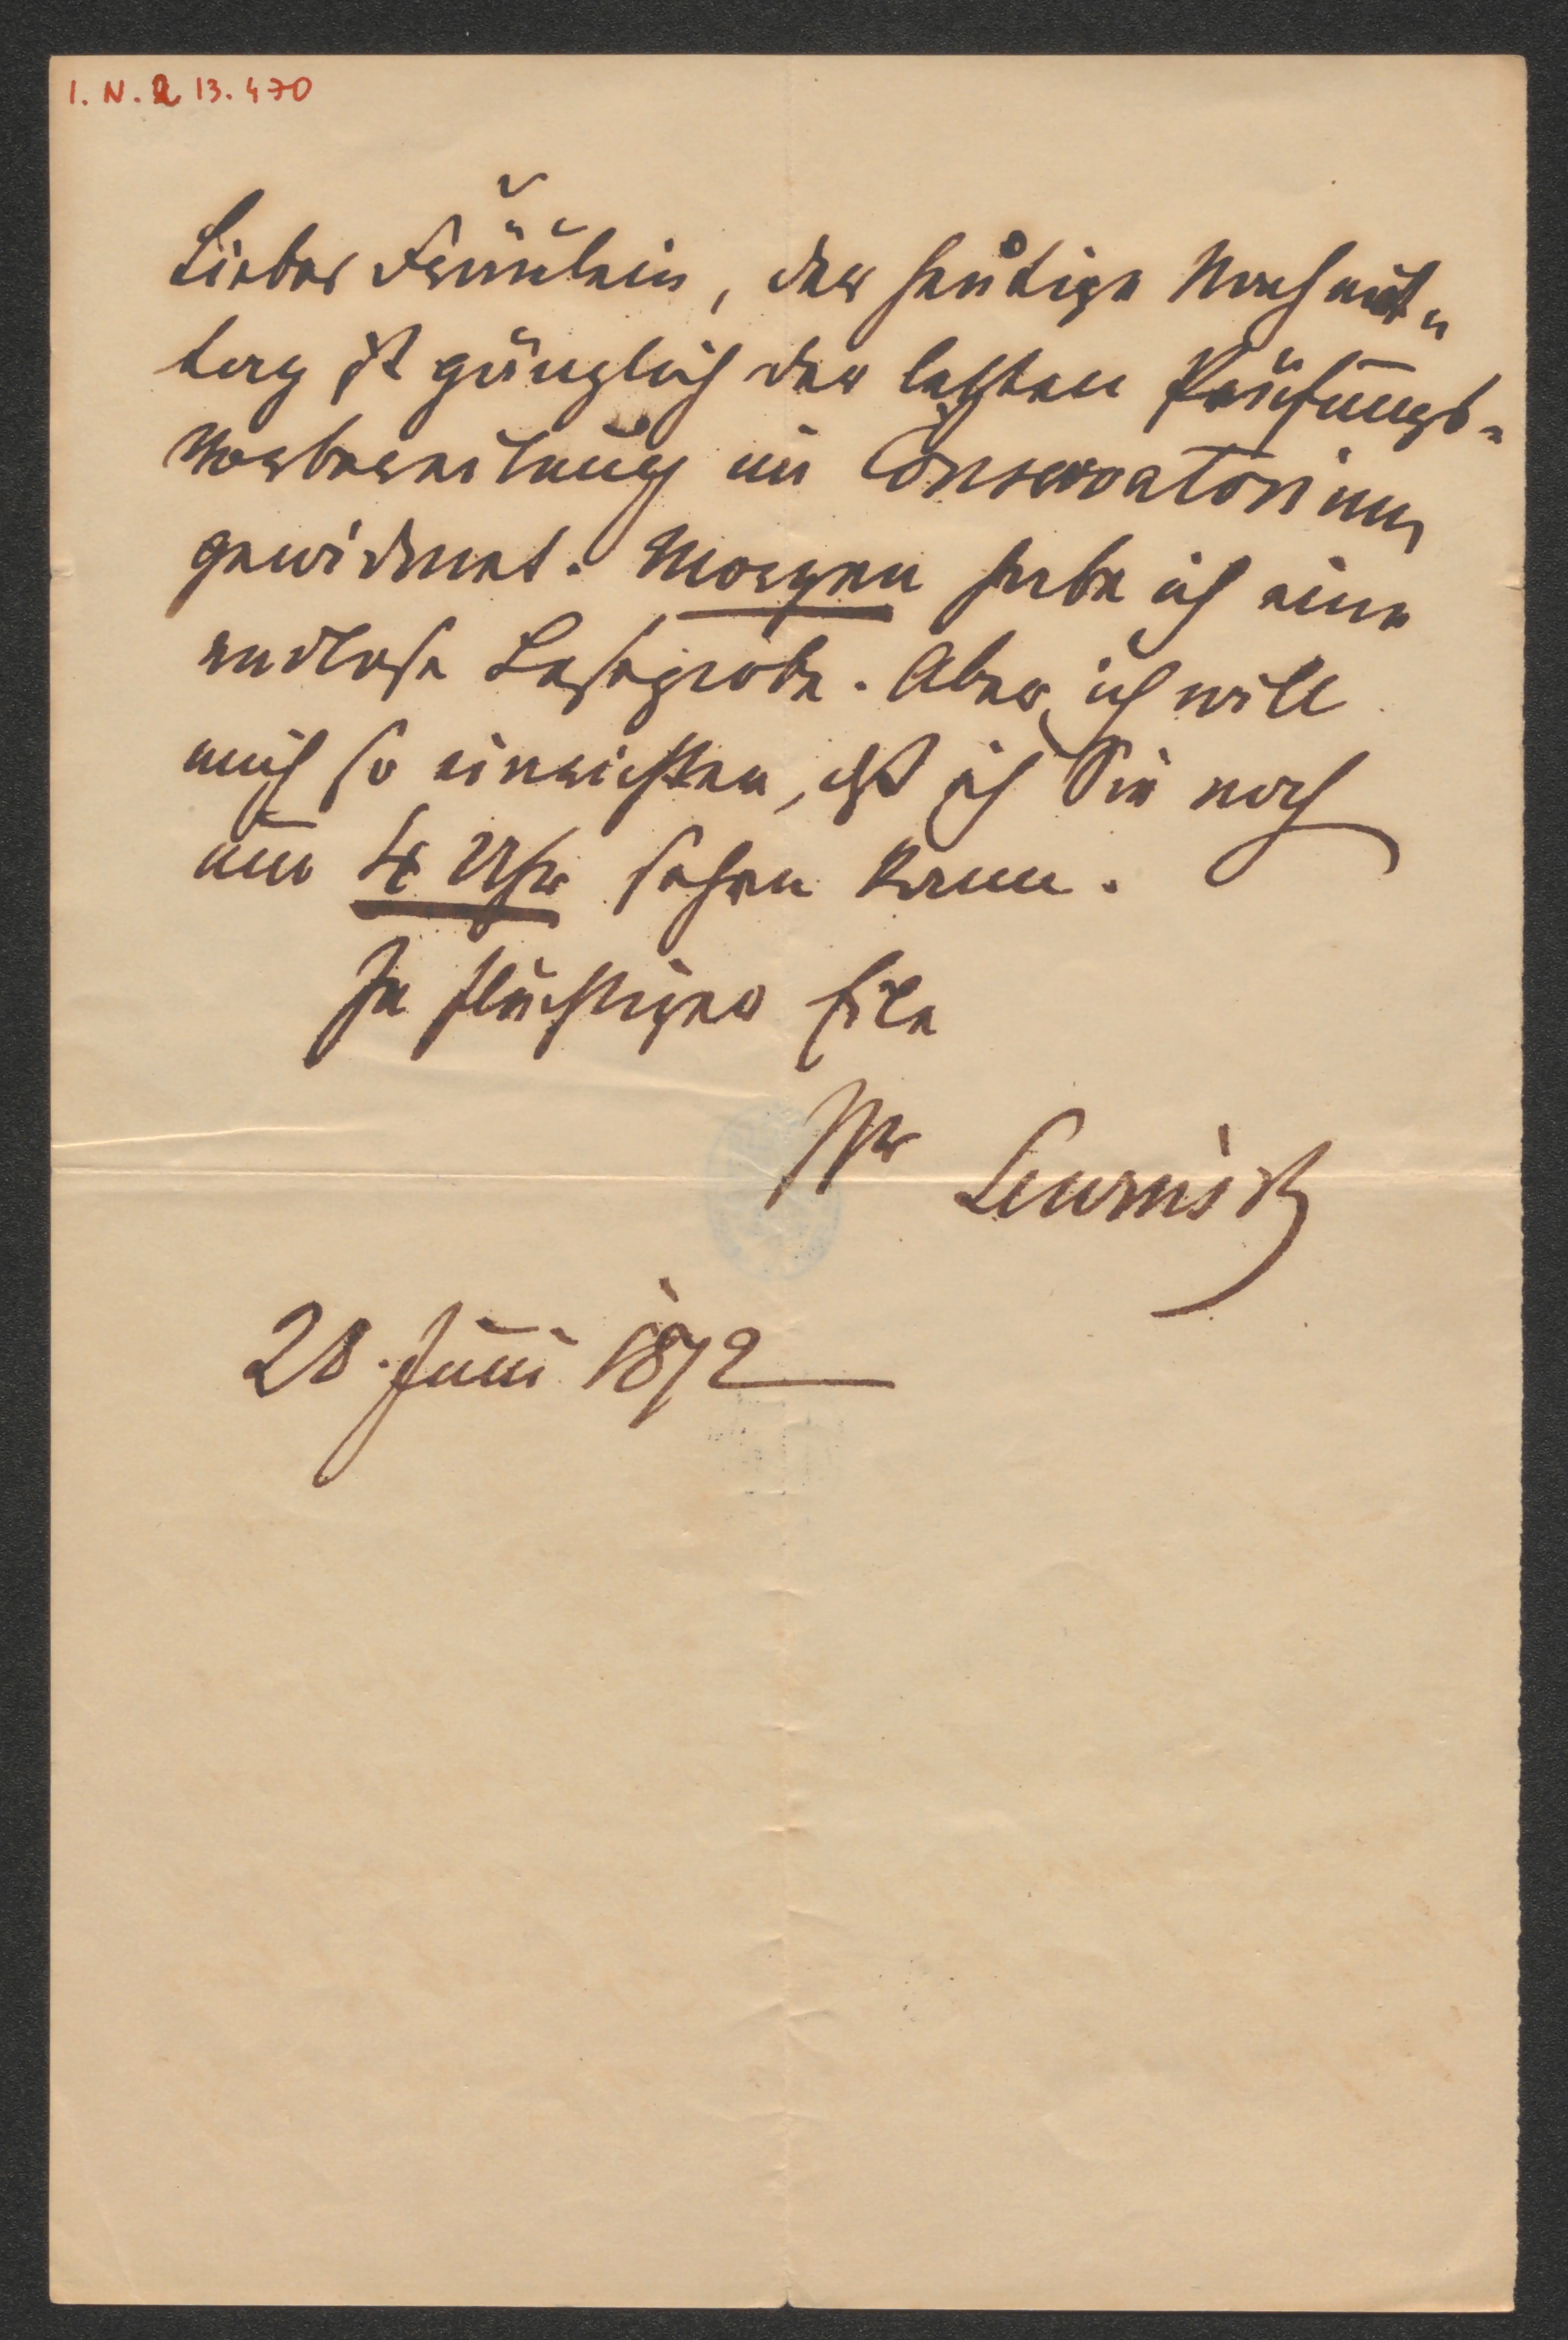 I. N. R 13.470
Liebes Fräulein, der heutige Nachmit-
tag ist gänzlich der letzten Prüfungs-
Vorbereitung im Conservatorium
gewidmet. Morgen habe ich eine
endlose Leseprobe. Aber ich will
mich so einrichten, daß ich Sie noch
um 4 Uhr sehen kann.
In flüchtiger Eile
Ihr Lewinsky
28. Juni 1872